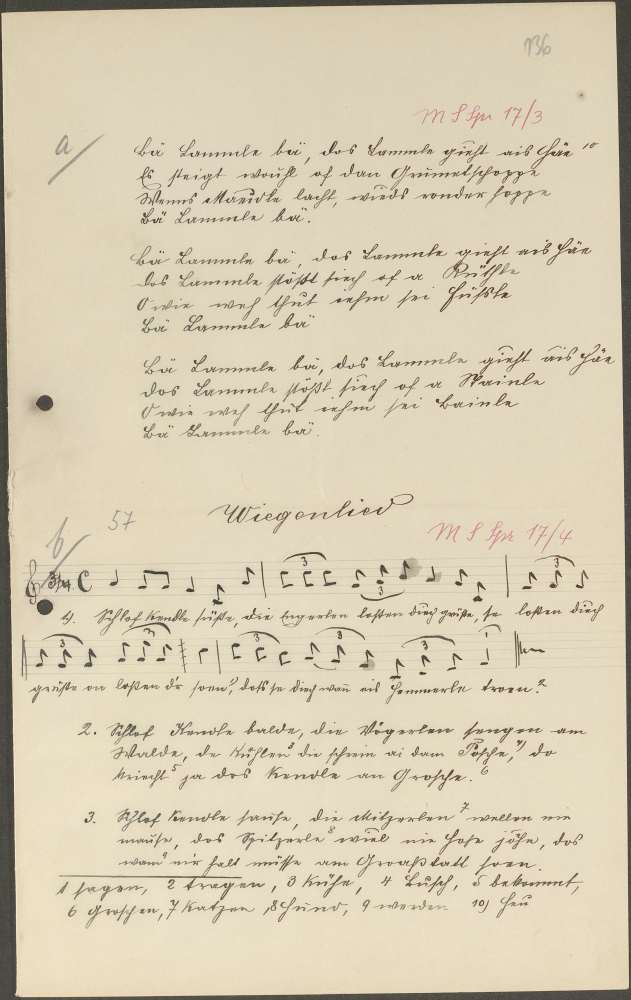 136
M S Spr 17/3
a/
Bä Lammle bä, dos Lammle gieht ais Häe ¹⁰
Es steigt wouhl of dan Grumetschoppe
Wenns Maridle lacht, wieds ronder hoppe
Bä Lammle bä.
Bä Lammle bä, dos Lammle gieht ais Häe
dos Lammle stößt siech of a Rüthle
O wie weh thut iehm sei Hüfste
Bä Lammle bä
Bä Lammle bä, dos Lammle gieht ais Häe
dos Lammle stößt siech of a Stainle
O wie weh thut iehm sei Bainle
Bä Lammle bä.
b/ 57 Wiegenlied
M S Spr 17/4
1). Schlof Kendle süße, die Engerlen loßen diech grüße, se loßen diech
grüße on loßen d'r soen¹, doß se diech wan² ais Hemmerle troen.²
2. Schlof Kendle balde, die Vögerlen sengen am
Walde, de Kühlen³ die schrein ai dam Pösche,⁴ do
kriecht⁵ ja dos Kendle an Grosche.⁶
3. Schlof Kendle sause, die Mitzerlen⁷ wellen nie
mause, dos Spitzerle⁸ wiel nie Hose jöhe, dos
wand⁹ mir halt müsse am Groaßtatl soen.
1 sagen, 2 tragen, 3 Kühe, 4 Busch, 5 bekommt,
6 Groschen, 7 Katzen, 8 Hund, 9 werden 10) Heu